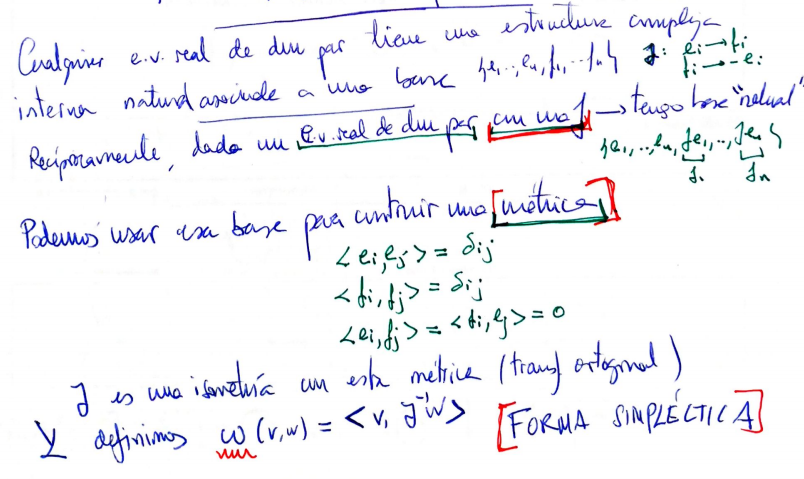 Cualquier e.v. real de dim par tiene una estructura compleja
interna natural asociada a una base {e₁,..,eₙ,f₁,..fₙ} J: eᵢ → fᵢ
fᵢ → -eᵢ
Recíprocamente, dado un e.v. real de dim par con una J → tengo base "natural"
{e₁,..,eₙ, Je₁,..,Jeₙ}
f₁ fₙ
Podemos usar esa base para construir una [métrica]
<eᵢ,eⱼ> = δᵢⱼ
<fᵢ,fⱼ> = δᵢⱼ
<eᵢ,fⱼ> = <fᵢ,eⱼ> = 0
J es una isometría con esta métrica (transf ortogonal)
Y definimos ω(v,w) = <v, J⁻¹w> [FORMA SIMPLÉCTICA]